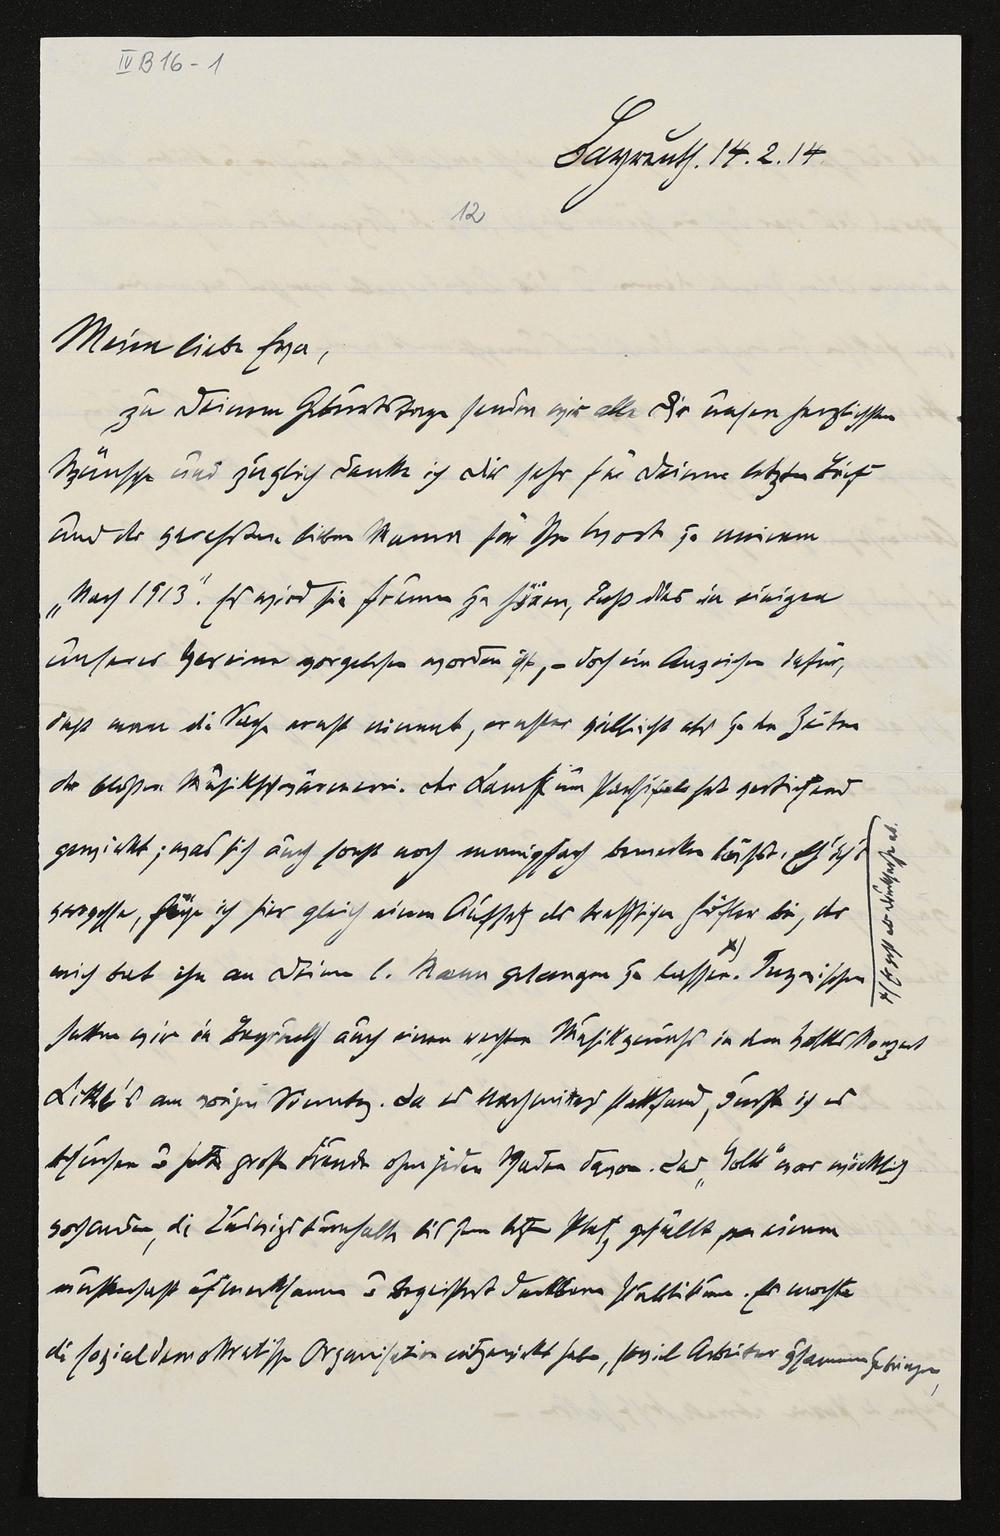 IV B 16 - 1
Bayreuth. 14. 2. 14
12
Meine liebe Eva,
zu Deinem Geburtstage senden wir alle Dir unsere herzlichsten
Wünsche und zugleich danke ich Dir sehr für Deinen letzten Brief
und der verehrten lieben Mama für Ihr Wort zu meinem
„Nach 1913“. Es wird sie freuen zu hören, daß dies in einigen
unserer Vereine vorgelesen worden ist, – doch ein Anzeichen dafür,
daß man die Sache ernst nimmt, ernster vielleicht als zu den Zeiten
der bloßen Musikschwärmerei. Der Kampf um Parsifal hat vertiefend
gewirkt; was sich auch sonst noch mannigfach bemerken lässt. Eh' ich's
vergesse, füge ich hier gleich einen Aufsatz des trefflichen Höfler bei, der
mich bat ihn an Deine l. Mama gelangen zu lassen. x) Inzwischen
hatten wir in Bayreuth auch einen rechten Musikgenuß in dem Volkskonzert
am vorigen Sonntag. Da es Nachmittags stattfand, durfte ich es
besuchen u hatte große Freude ohne jeden Schaden davon. Das „Volk“ war wirklich
vorhanden, die bis zum letzten Platz gefüllt von einem
musterhaft aufmerksamen u begeistert dankbaren Publikum. Es mochte
die sozialdemokratische Organisation mitgewirkt haben, soviel Arbeiter zusammenzubringen,
x) geht als Drucksache ab.